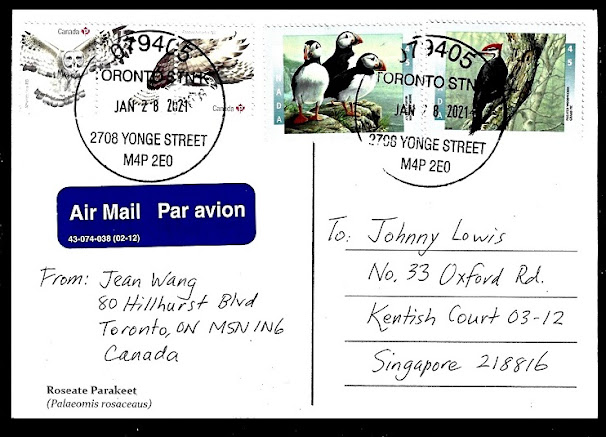 Canada P
Canada P
CANADA
45
45
079405
TORONTO STN K
JAN 28 2021
2708 YONGE STREET
M4P 2E0
079405
TORONTO STN K
JAN 28 2021
2708 YONGE STREET
M4P 2E0
Air Mail Par avion
43-074-038 (02-12)
From: Jean Wang
80 Hillhurst Blvd
Toronto, ON M5N 1N6
Canada
Roseate Parakeet
(Palaeornis rosaceaus)
To: Johnny Lowis
No. 33 Oxford Rd.
Kentish Court 03-12
Singapore 218816